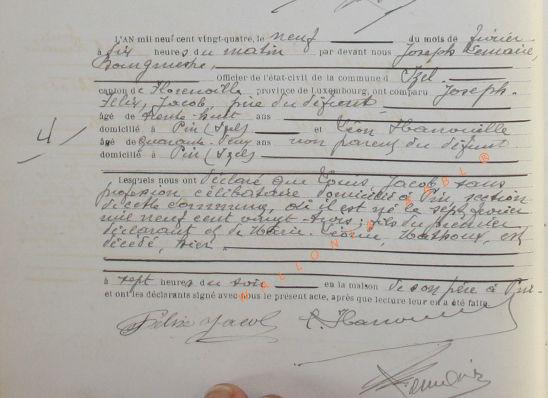 L'AN mil neuf cent vingt-quatre, le neuf du mois de février
à dix heures du matin par devant nous Joseph Lemaire,
Bourgmestre,
Officier de l'état-civil de la commune d'Izel
canton de Florenville province de Luxembourg, ont comparu Joseph
Félix, Jacob, père du défunt
âgé de trente-huit ans
domicilié à Pin (Izel) et Léon Hanouille
âgé de quarante- ans non parent du défunt
domicilié à Pin (Izel)
4/
Lesquels nous ont déclaré que Louis Jacob sans
profession célibataire domicilié à Pin section
de cette commune, où il est né le sept février
mil neuf cent vingt trois; fils du premier
déclarant et de Marie est
décédé, hier
à sept heures du soir en la maison de son père à Pin.
et ont les déclarants signé avec nous le présent acte, après que lecture leur en a été faite.
Félix Jacob L. Hanouille
Lemaire